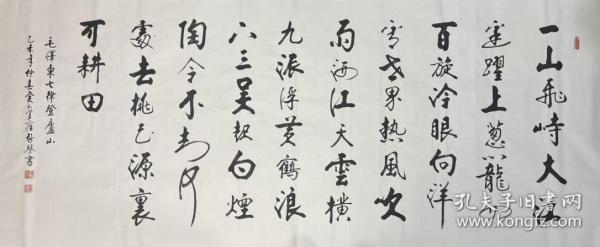 一山飛峙大江
邊躍上蔥蘢四
百旋冷眼向洋
看世界熱風吹
雨洒江天雲橫
九派浮黃鶴浪
下三吳起白煙
陶令不知何
處去桃花源裏
可耕田
毛澤東七律登廬山
孔夫子旧书网